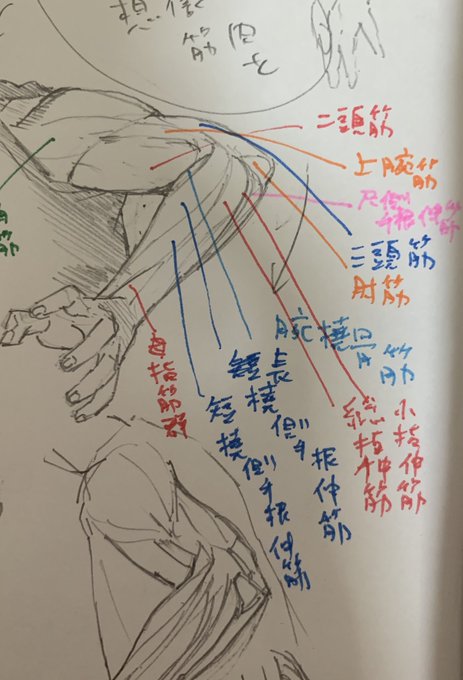 二頭筋
上腕筋
尺側手根伸筋
三頭筋
肘筋
腕橈骨筋
小指伸筋
総指伸筋
長橈側手根伸筋
短橈側手根伸筋
母指筋群